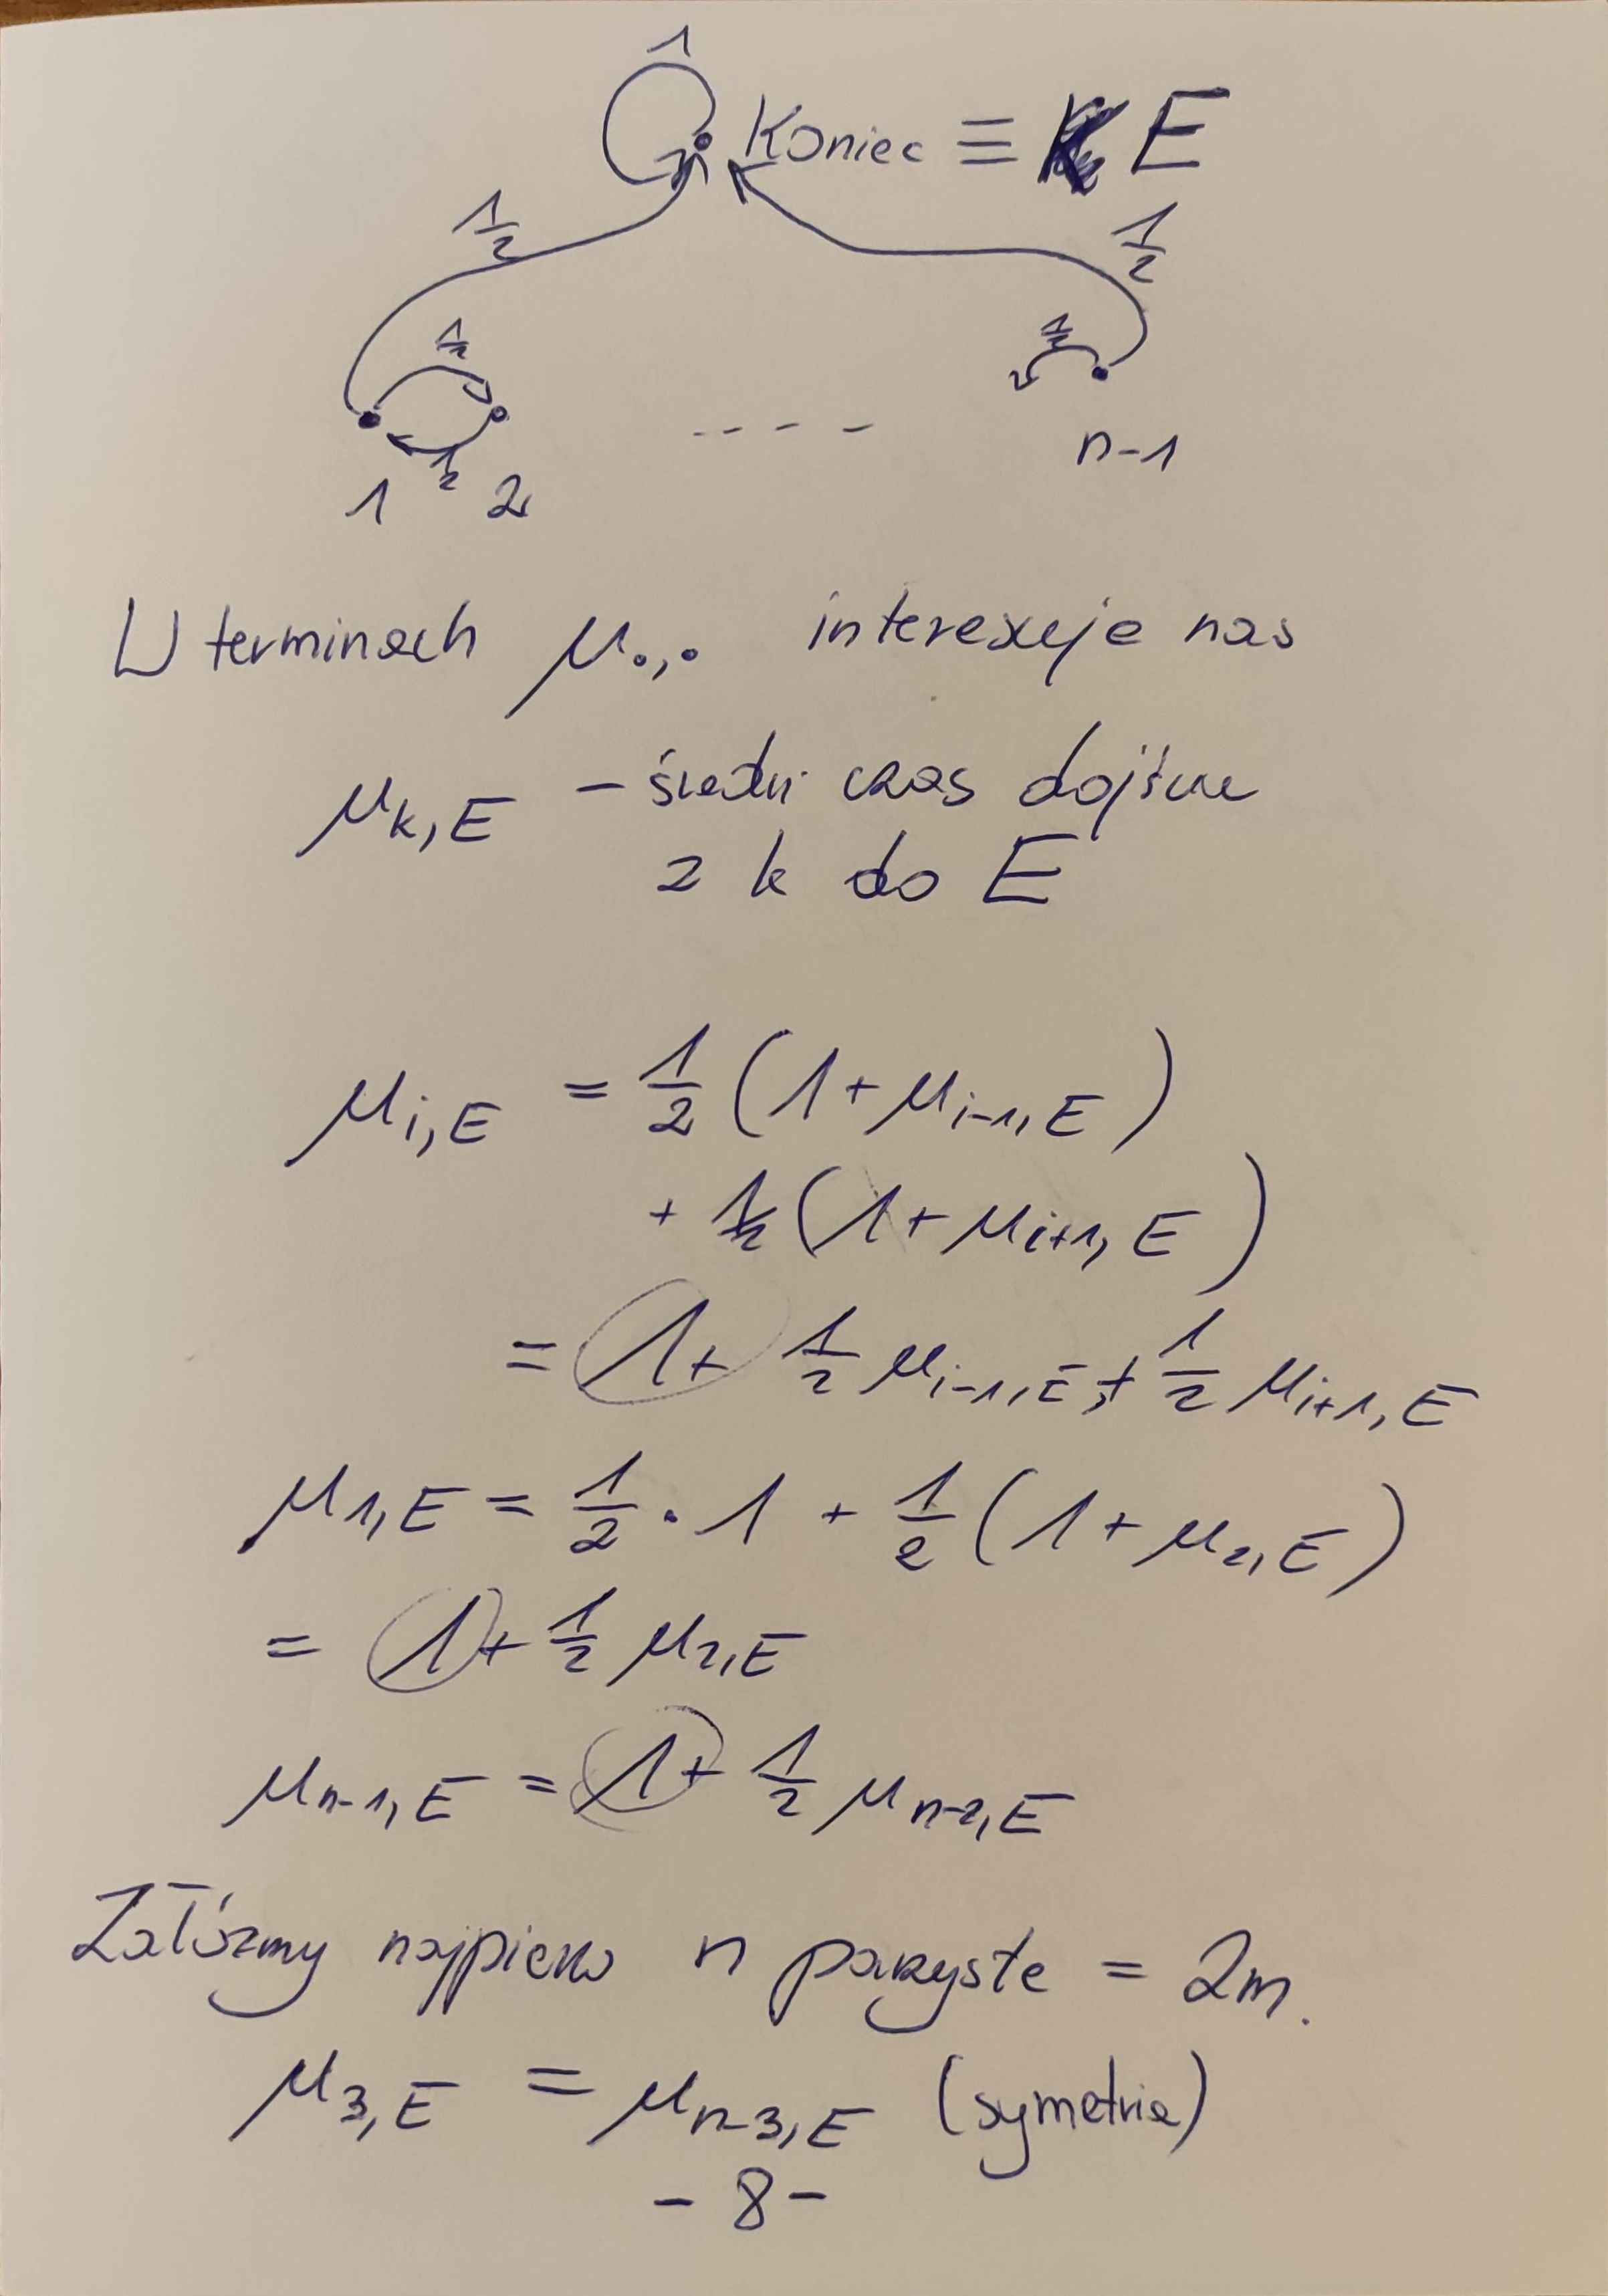 1
Koniec ≡ E
1/2 1/2
1/2 1/2
- - - -
1/2 n-1
1 2
W terminach μ.,. interesuje nas
μ_{k,E} – średni czas dojścia
z k do E
μ_{i,E} = 1/2 (1 + μ_{i-1,E})
+ 1/2 (1 + μ_{i+1,E})
= 1 + 1/2 μ_{i-1,E} + 1/2 μ_{i+1,E}
μ_{1,E} = 1/2 · 1 + 1/2 (1 + μ_{2,E})
= 1 + 1/2 μ_{2,E}
μ_{n-1,E} = 1 + 1/2 μ_{n-2,E}
Załóżmy najpierw n parzyste = 2m.
μ_{3,E} = μ_{n-3,E} (symetria)
- 8 -